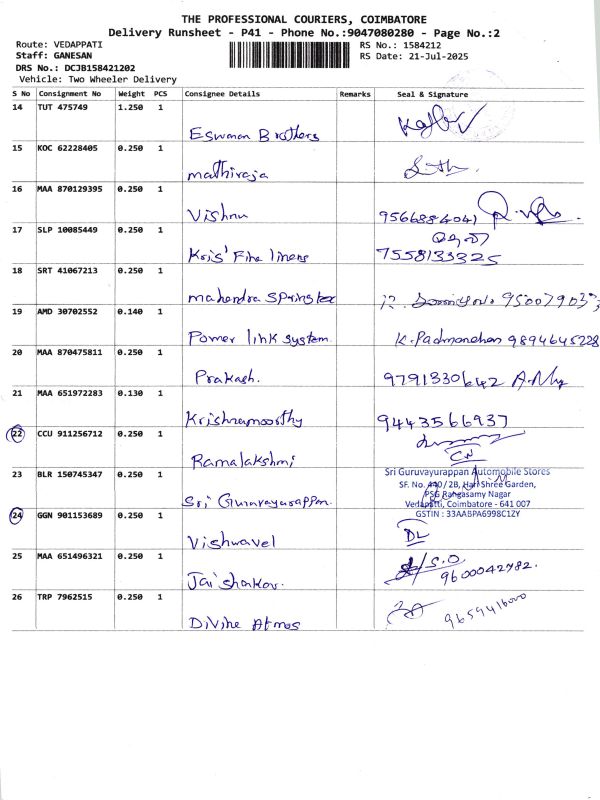 THE PROFESSIONAL COURIERS, COIMBATORE
Delivery Runsheet - P41 - Phone No.:9047080280 - Page No.:2
Route: VEDAPPATI
RS No.: 1584212
Staff: GANESAN
RS Date: 21-Jul-2025
DRS No.: DCJB158421202
Vehicle: Two Wheeler Delivery
S No Consignment No Weight PCS Consignee Details Remarks Seal & Signature
14 TUT 475749 1.250 1
Eswaran Brothers
15 KOC 62228405 0.250 1
mathiraja
16 MAA 870129395 0.250 1
Vishnu 9566884041
17 SLP 10085449 0.250 1
Kris' Fire liners 7558133325
18 SRT 41067213 0.250 1
mahendra Springtex
19 AMD 30702552 0.140 1
Power link system. K. Padmanaban 9894645228
20 MAA 870475811 0.250 1
Prakash. 9791330642
21 MAA 651972283 0.130 1
Krishnamoorthy 9443566937
22 CCU 911256712 0.250 1
Ramalakshmi CN
23 BLR 150745347 0.250 1
Sri Guruvayurappan.
Sri Guruvayurappan Automobile Stores
SF. No. 440 / 2B, Hari Shree Garden,
PSG Rangasamy Nagar
Vedapatti, Coimbatore - 641 007
GSTIN : 33AABPA6998C1ZY
24 GGN 901153689 0.250 1
Vishwavel DL
25 MAA 651496321 0.250 1
Jai shakar. S.O.
9600042782.
26 TRP 7962515 0.250 1
Divine Atmos 9659416000